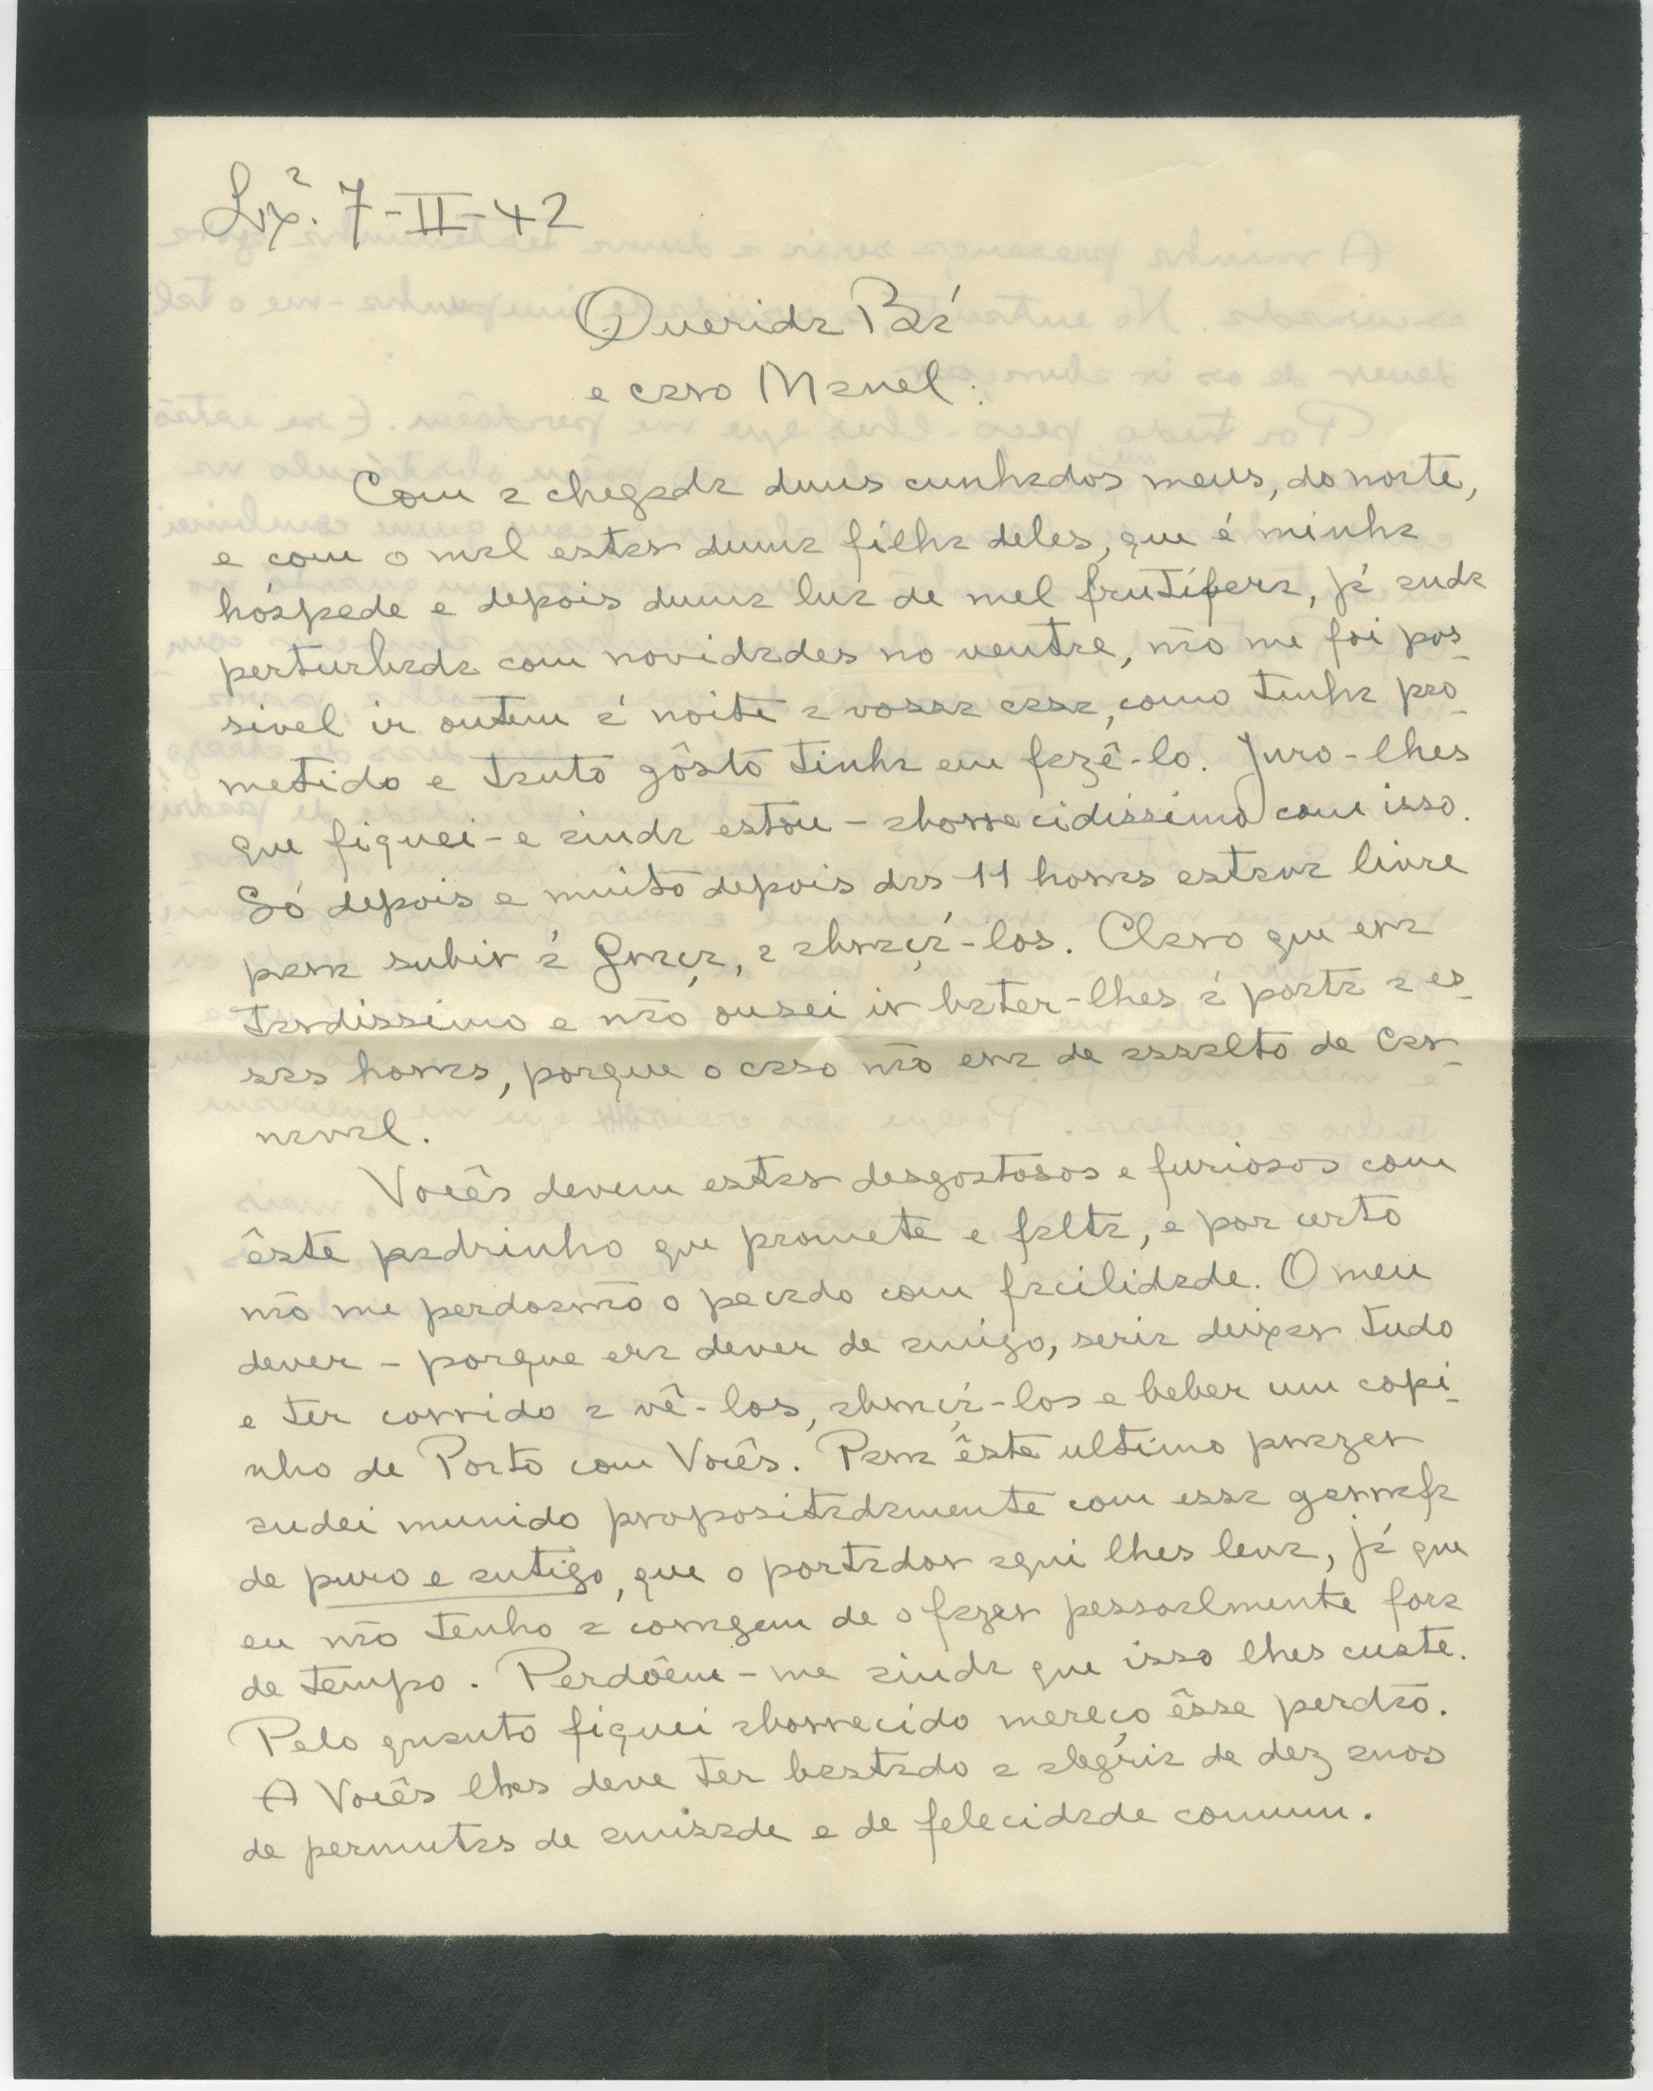 Lxª. 7-II-42
Querida Bá
e caro Manel:
Com a chegada duns cunhados meus, do norte,
e com o mal estar duma filha deles, que é minha
hóspede e depois duma lua de mel frutífera, já anda
perturbada com novidades no ventre, não me foi pos-
sivel ir ontem á noite a vossa casa, como tinha pro-
metido e tanto gôsto tinha em fazê-lo. Juro-lhes
que fiquei - e ainda estou - aborrecidissimo com isso.
Só depois e muito depois das 11 horas estava livre
para subir á Graça, a abraçá-los. Claro que era
tardissimo e não ousei ir bater-lhes á porta a es-
sas horas, porque o caso não era de assalto de Car-
naval.
Vocês devem estar desgostosos e furiosos com
êste padrinho que promete e falta, e por certo
não me perdoarão o pecado com facilidade. O meu
dever - porque era dever de amigo, seria deixar tudo
e ter corrido a vê-los, abraçá-los e beber um copi-
nho de Porto com Vocês. Para êste ultimo prazer
andei munido propositadamente com essa garrafa
de puro e antigo, que o portador aqui lhes leva, já que
eu não tenho a coragem de o fazer pessoalmente fora
de tempo. Perdôem-me ainda que isso lhes custe.
Pelo quanto fiquei aborrecido mereço êsse perdão.
A Vocês lhes deve ter bastado a alegria de dez anos
de permutas de amisade e de felecidade comum.